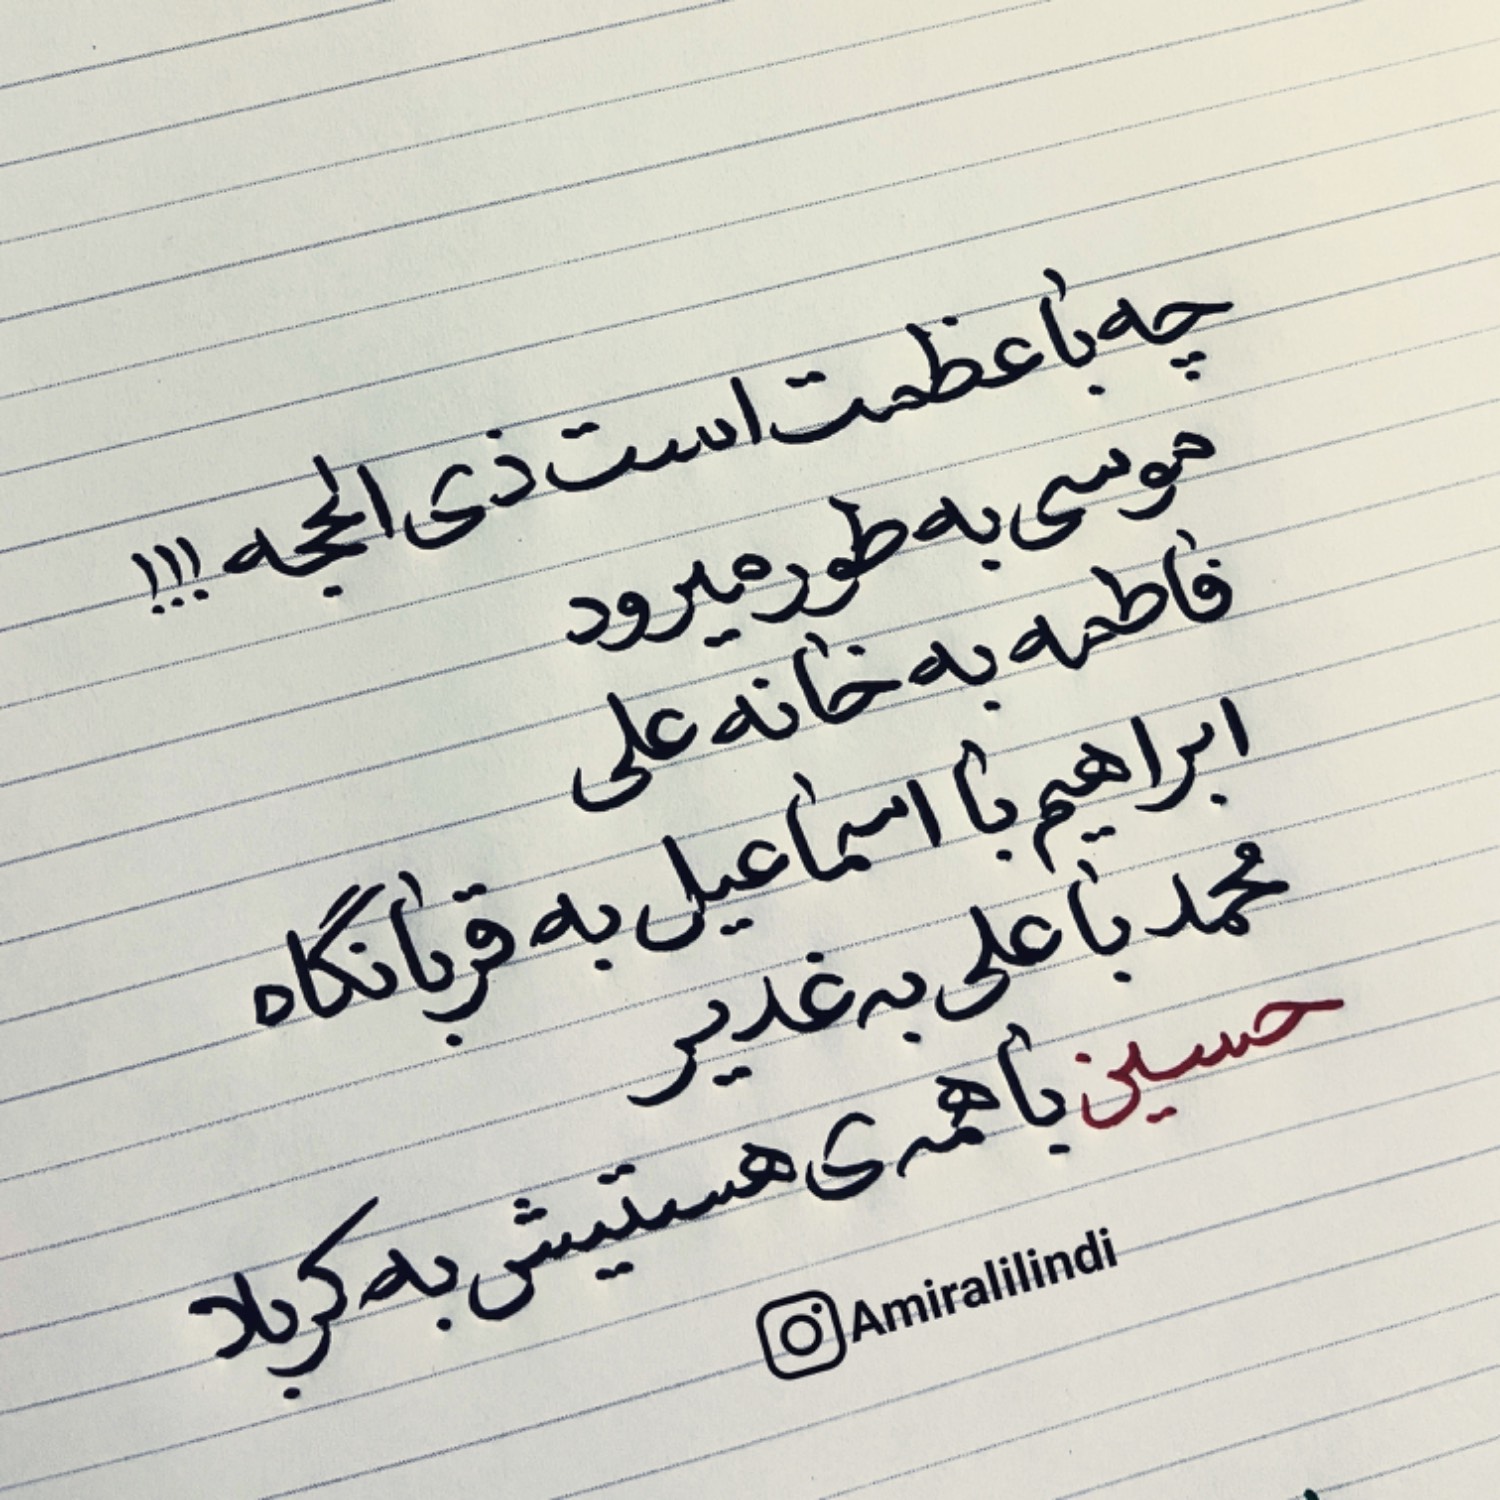 چه با عظمت است ذی الحجه !!!
موسی به طور میرود
فاطمه به خانه علی
ابراهیم با اسماعیل به قربانگاه
مُحمد با علی به غدیر
حسین با همه ی هستیش به کربلا
Amiralilindi